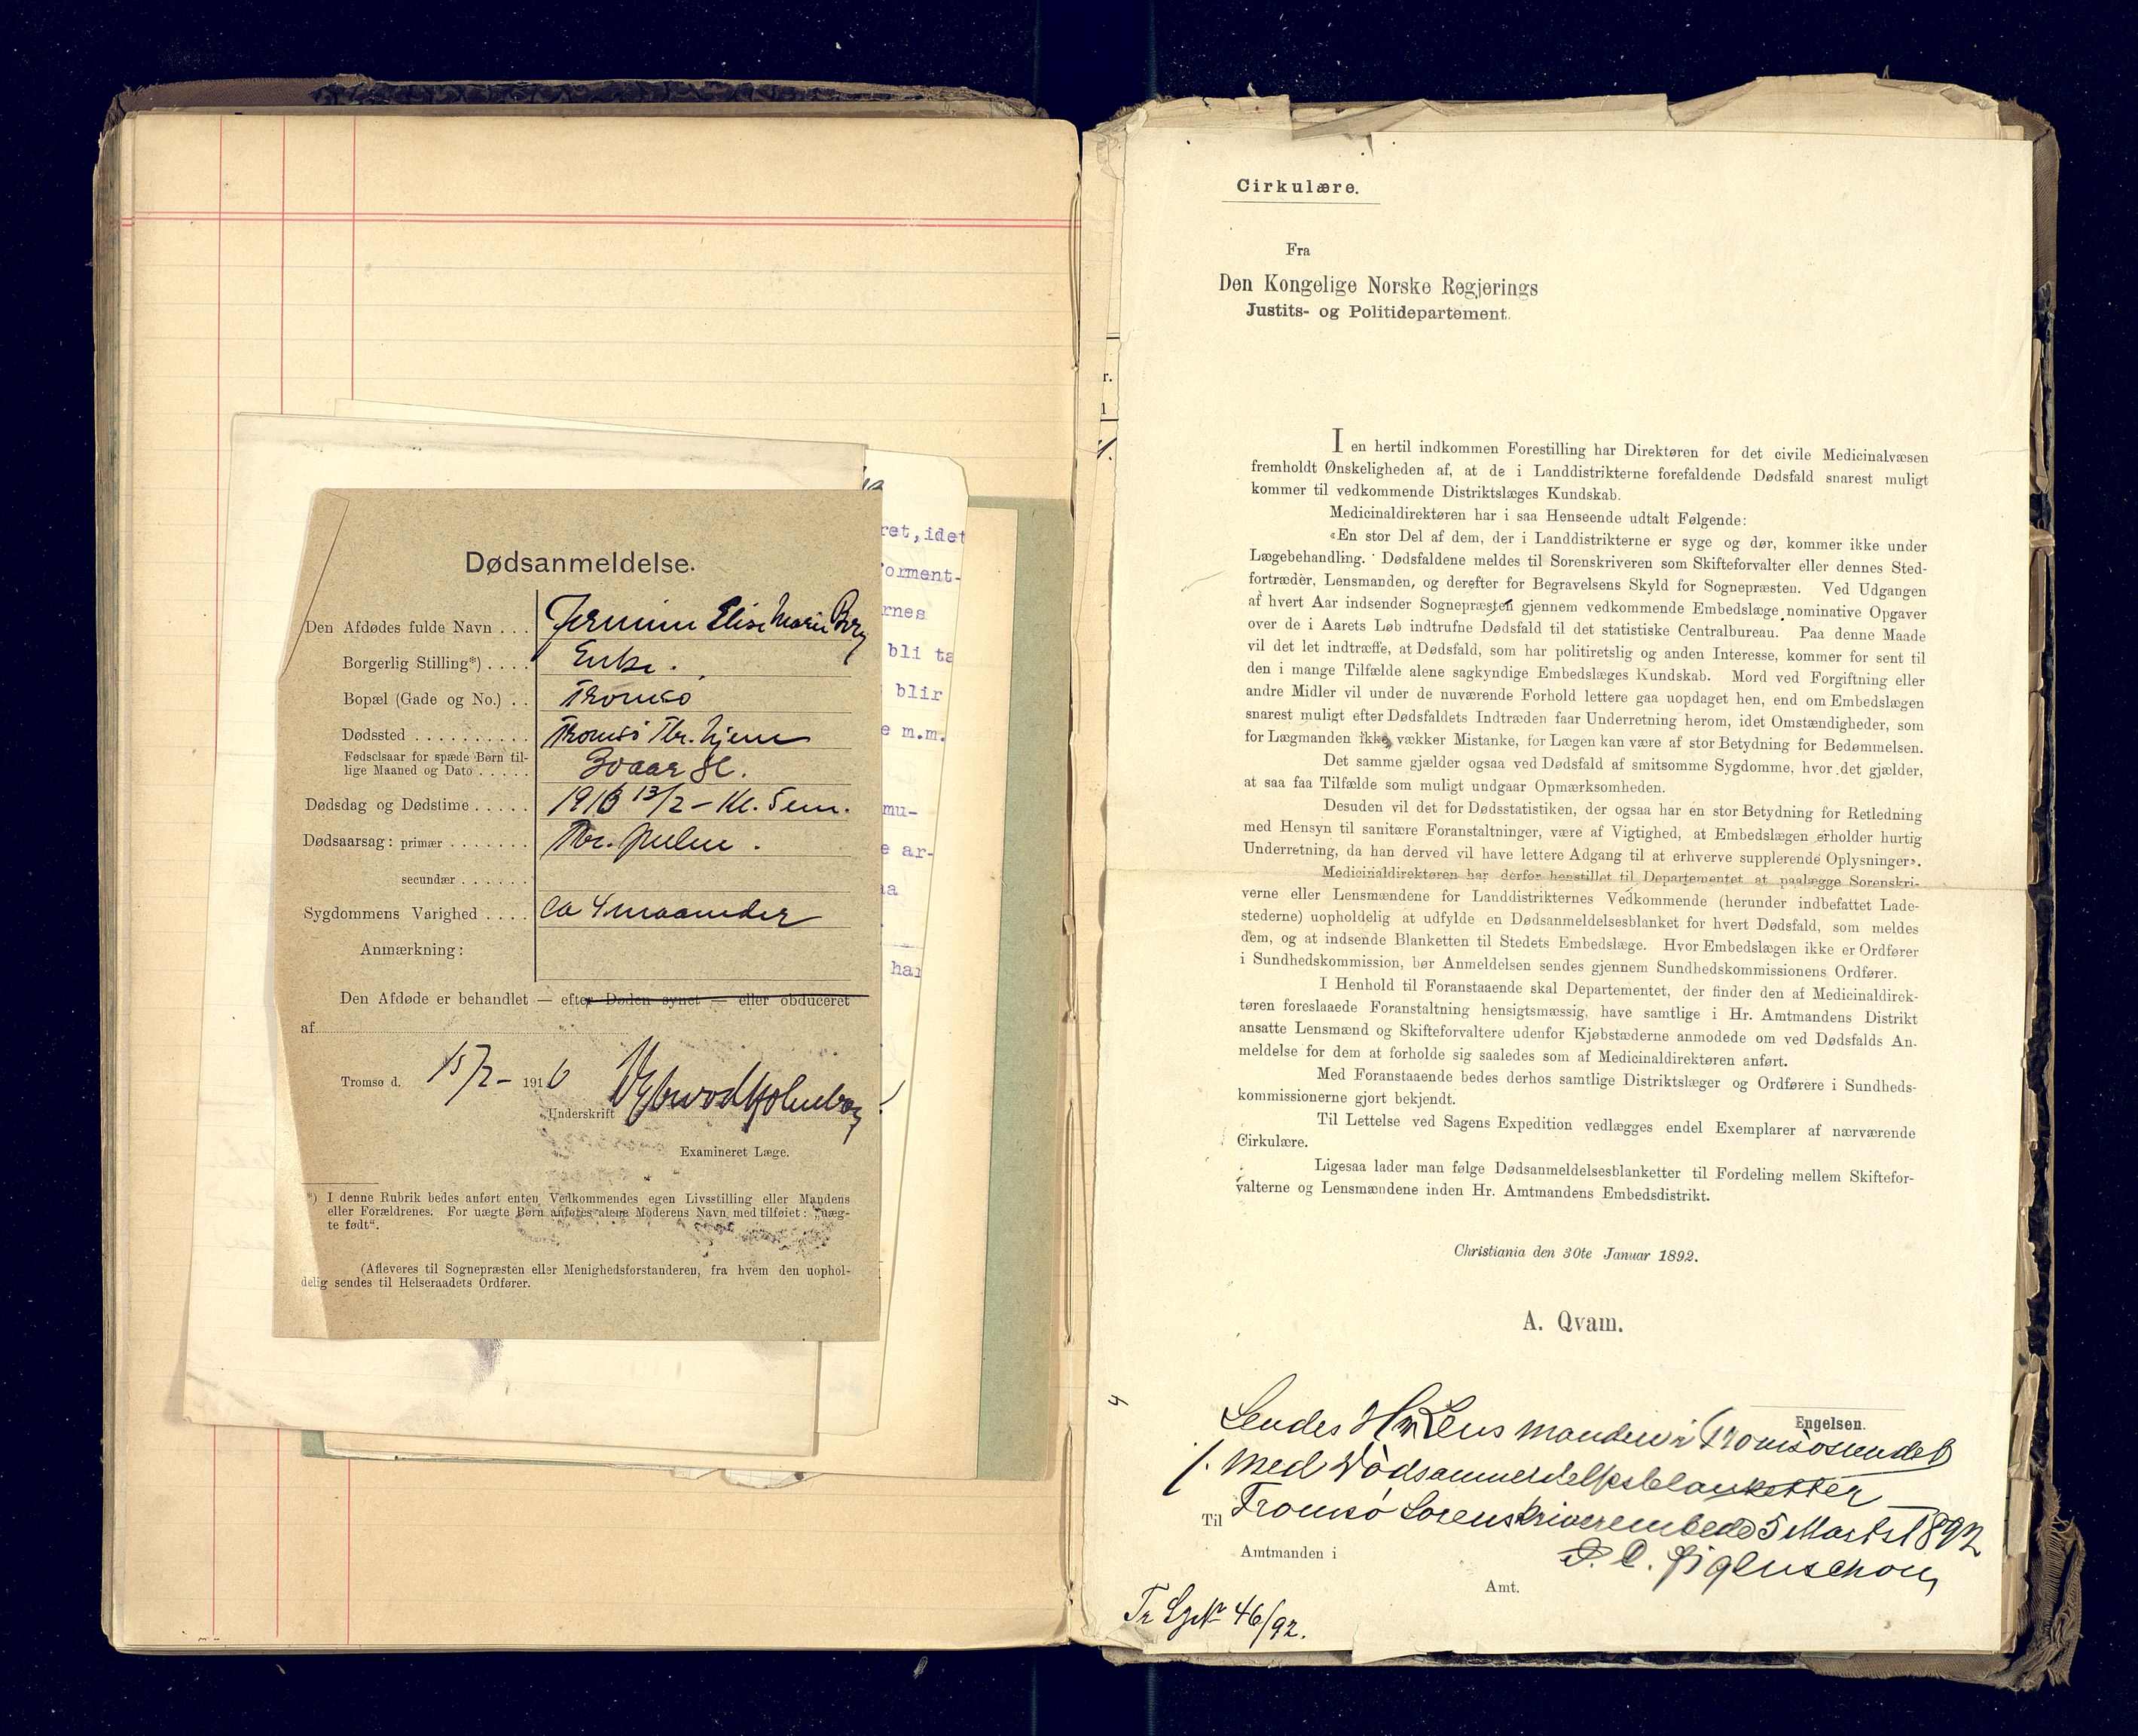 Dødsanmeldelse.
Den Afdødes fulde Navn . . . Elise Marie Berg
Borgerlig Stilling*) . . . . Enke.
Bopæl (Gade og No.) . . Tromsø
Dødssted . . . . . . . . . . Tromsø Tbr. hjem
Fødselsaar for spæde Børn til-
lige Maaned og Dato . . . . . 30 aar gl.
Dødsdag og Dødstime . . . . . 1916 13/2 – Kl. 5 em.
Dødsaarsag: primær . . . . . . . Tbr. pulm.
secundær . . . . . .
Sygdommens Varighed . . . . ca 4 maaneder
Anmærkning:
Den Afdøde er behandlet — efter Døden synet — eller obduceret
af
Tromsø d. 15/2 – 1916
Underskrift
Examineret Læge.
*) I denne Rubrik bedes anført enten Vedkommendes egen Livsstilling eller Mandens
eller Forældrenes. For uægte Børn anføtes alene Moderens Navn med tilføiet: „uæg-
te født“.
(Afleveres til Sognepræsten eller Menighedsforstanderen, fra hvem den uophol-
delig sendes til Helseraadets Ordfører.
ret, idet
orment-
rnes
bli ta
blir
e m.m.
mu-
e ar-
aa
har
Cirkulære.
Fra
Den Kongelige Norske Regjerings
Justits- og Politidepartement.
I en hertil indkommen Forestilling har Direktøren for det civile Medicinalvæsen
fremholdt Ønskeligheden af, at de i Landdistrikterne forefaldende Dødsfald snarest muligt
kommer til vedkommende Distriktslæges Kundskab.
Medicinaldirektøren har i saa Henseende udtalt Følgende:
«En stor Del af dem, der i Landdistrikterne er syge og dør, kommer ikke under
Lægebehandling. Dødsfaldene meldes til Sorenskriveren som Skifteforvalter eller dennes Sted-
fortræder, Lensmanden, og derefter for Begravelsens Skyld for Sognepræsten. Ved Udgangen
af hvert Aar indsender Sognepræsten gjennem vedkommende Embedslæge nominative Opgaver
over de i Aarets Løb indtrufne Dødsfald til det statistiske Centralbureau. Paa denne Maade
vil det let indtræffe, at Dødsfald, som har politiretslig og anden Interesse, kommer for sent til
den i mange Tilfælde alene sagkyndige Embedslæges Kundskab. Mord ved Forgiftning eller
andre Midler vil under de nuværende Forhold lettere gaa uopdaget hen, end om Embedslægen
snarest muligt efter Dødsfaldets Indtræden faar Underretning herom, idet Omstændigheder, som
for Lægmanden ikke vækker Mistanke, for Lægen kan være af stor Betydning for Bedømmelsen.
Det samme gjælder ogsaa ved Dødsfald af smitsomme Sygdomme, hvor det gjælder,
at saa faa Tilfælde som muligt undgaar Opmærksomheden.
Desuden vil det for Dødsstatistiken, der ogsaa har en stor Betydning for Retledning
med Hensyn til sanitære Foranstaltninger, være af Vigtighed, at Embedslægen erholder hurtig
Underretning, da han derved vil have lettere Adgang til at erhverve supplerende Oplysninger».
Medicinaldirektøren har derfor henstillet til Departementet at paalægge Sorenskri-
verne eller Lensmændene for Landdistrikternes Vedkommende (herunder indbefattet Lade-
stederne) uopholdelig at udfylde en Dødsanmeldelsesblanket for hvert Dødsfald, som meldes
dem, og at indsende Blanketten til Stedets Embedslæge. Hvor Embedslægen ikke er Ordfører
i Sundhedskommission, bør Anmeldelsen sendes gjennem Sundhedskommissionens Ordfører.
I Henhold til Foranstaaende skal Departementet, der finder den af Medicinaldirek-
tøren foreslaaede Foranstaltning hensigtsmæssig, have samtlige i Hr. Amtmandens Distrikt
ansatte Lensmænd og Skifteforvaltere udenfor Kjøbstæderne anmodede om ved Dødsfalds An-
meldelse for dem at forholde sig saaledes som af Medicinaldirektøren anført.
Med Foranstaaende bedes derhos samtlige Distriktslæger og Ordførere i Sundheds-
kommissionerne gjort bekjendt.
Til Lettelse ved Sagens Expedition vedlægges endel Exemplarer af nærværende
Cirkulære.
Ligesaa lader man følge Dødsanmeldelsesblanketter til Fordeling mellem Skiftefor-
valterne og Lensmændene inden Hr. Amtmandens Embedsdistrikt.
Christiania den 30te Januar 1892.
A. Qvam.
Engelsen.
Sendes Hr Lensmanden i Tromsøsundet
med Dødsanmeldelsesblanketter
Til Tromsø Sorenskriverembede 5 Marts 1892
Amtmanden i
Amt.
46/92.